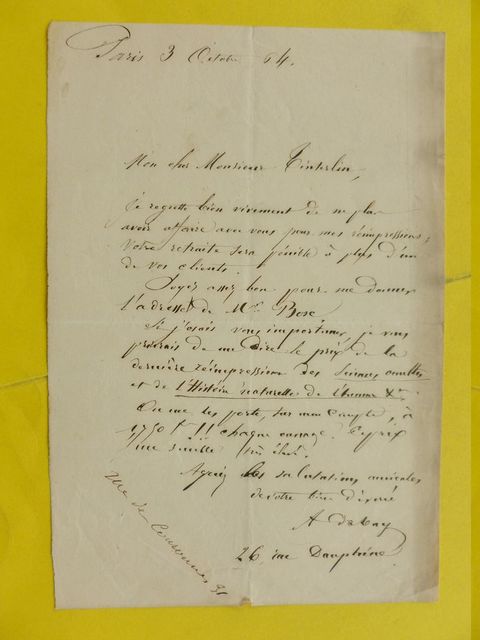 Paris 3 Octobre 64.
Mon cher Monsieur Tinterlin,
Je regrette bien vivement de ne plus
avoir affaire avec vous pour mes réimpressions;
Votre retraite sera pénible à plus d'un
de vos clients.
Soyez assez bon pour me donner
l'adresse de Mr Bosc
Si j'osais vous importuner, je vous
prierais de me dire le prix de la
dernière réimpression des Sciences occultes
et de l'Histoire naturelle de l'homme &
On me les porte, sur mon compte, à
1,750 f !! chaque ouvrage. Ce prix
me semble très élevé.
Agréez les salutations amicales
de votre bien dévoué
A Debay
26, rue Dauphine
rue de Couronnes 31